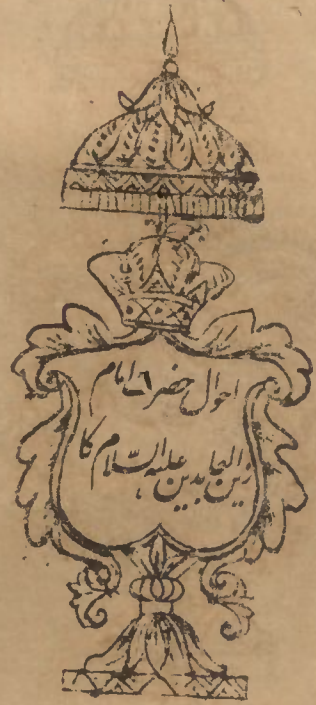 احوال حضرت امام
زین العابدین علیه السّلام کا